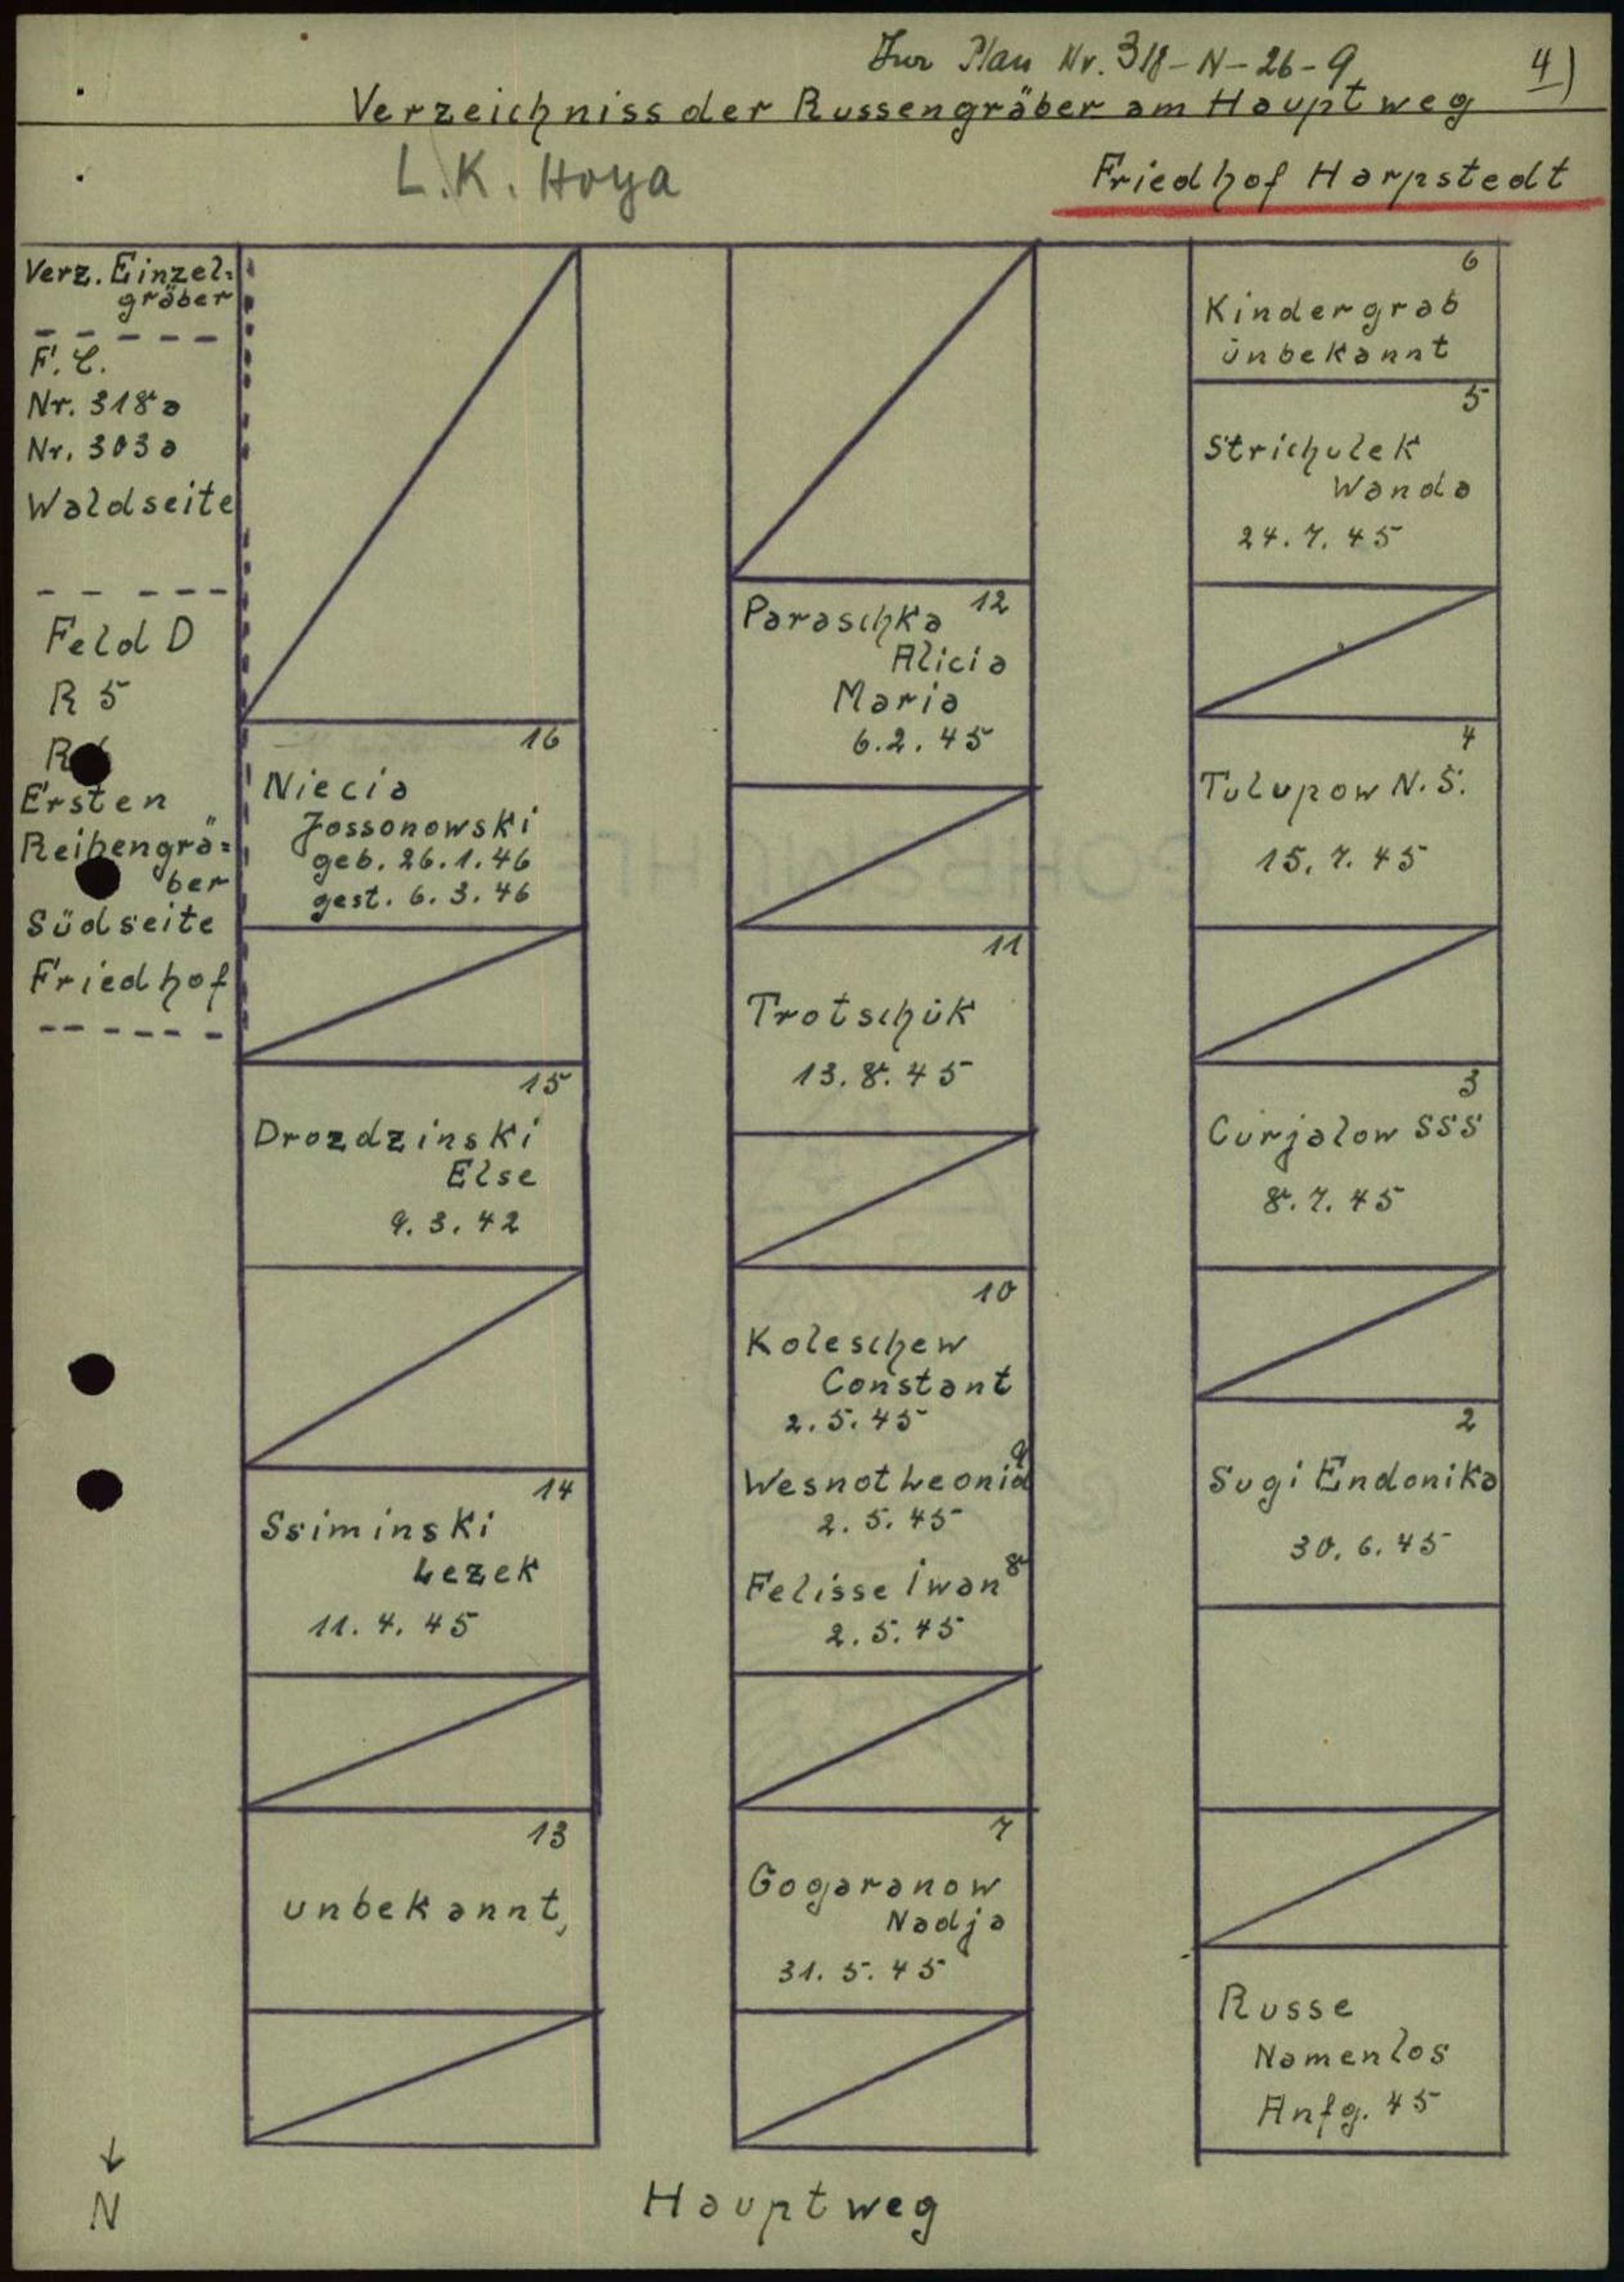 Zur Plan Nr. 318-N-26-9
4)
Verzeichniss der Russengräber am Hauptweg
L.K. Hoya
Friedhof Harpstedt
Verz. Einzel=
gräber
F.C.
Nr. 318a
Nr. 303a
Waldseite
Feld D
R 5
R
Ersten
Reihengrä=
ber
Südseite
Friedhof
16
Niecia
Jossonowski
geb. 26.1.46
gest. 6.3.46
15
Drozdzinski
Else
9.3.42
14
Ssiminski
Lezek
11.4.45
13
unbekannt,
12
Paraschka
Alicia
Maria
6.2.45
11
Trotschük
13.8.45
10
Koleschew
Constant
2.5.45
9
Wesnot Leonid
2.5.45
8
Felisse Iwan
2.5.45
7
Gogaranow
Nadja
31.5.45
6
Kindergrab
ünbekannt
5
Strichulek
Wanda
24.7.45
4
Tulupow N.S.
15.7.45
3
Curjalow SSS
8.7.45
2
Sugi Endonika
30.6.45
Russe
Namenlos
Anfg. 45
N
Hauptweg